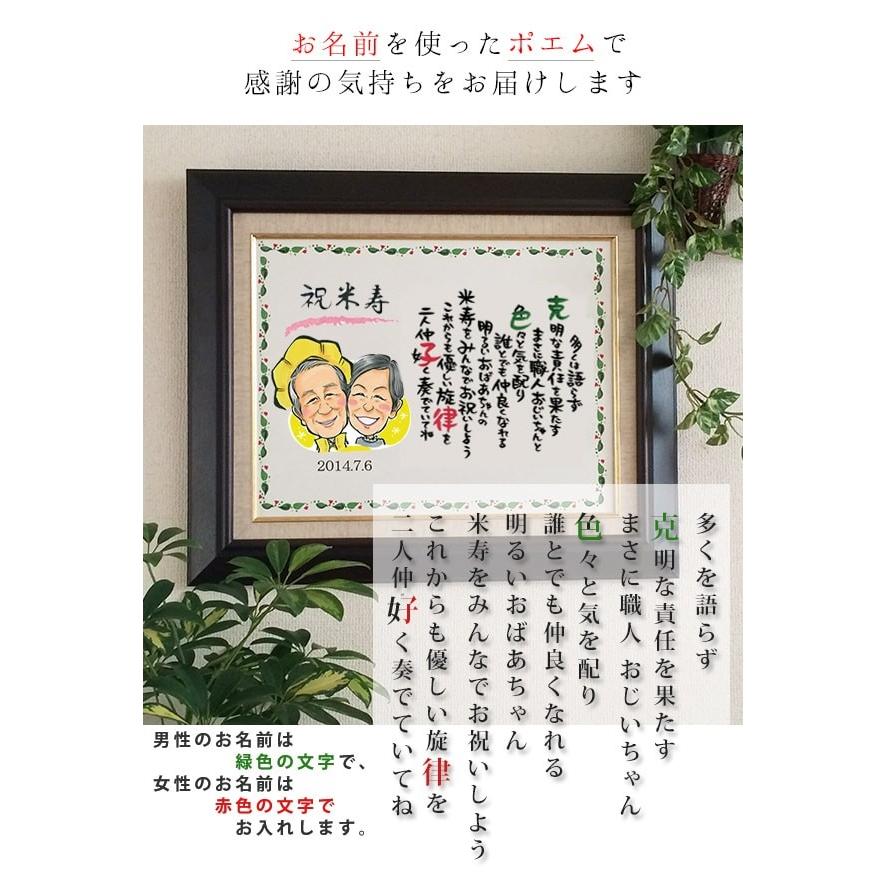 お名前を使ったポエムで
感謝の気持ちをお届けします
祝米寿
2014.7.6
多くは語らず
克明な責任を果たす
まさに職人おじいちゃんと
色々と気を配り
誰とでも仲良くなれる
明るいおばあちゃんの
米寿をみんなでお祝いしよう
これからも優しい旋律を
二人仲好く奏でていてね
多くを語らず
克明な責任を果たす
まさに職人 おじいちゃん
色々と気を配り
誰とでも仲良くなれる
明るいおばあちゃん
米寿をみんなでお祝いしよう
これからも優しい旋律を
二人仲好く奏でていてね
男性のお名前は
緑色の文字で、
女性のお名前は
赤色の文字で
お入れします。